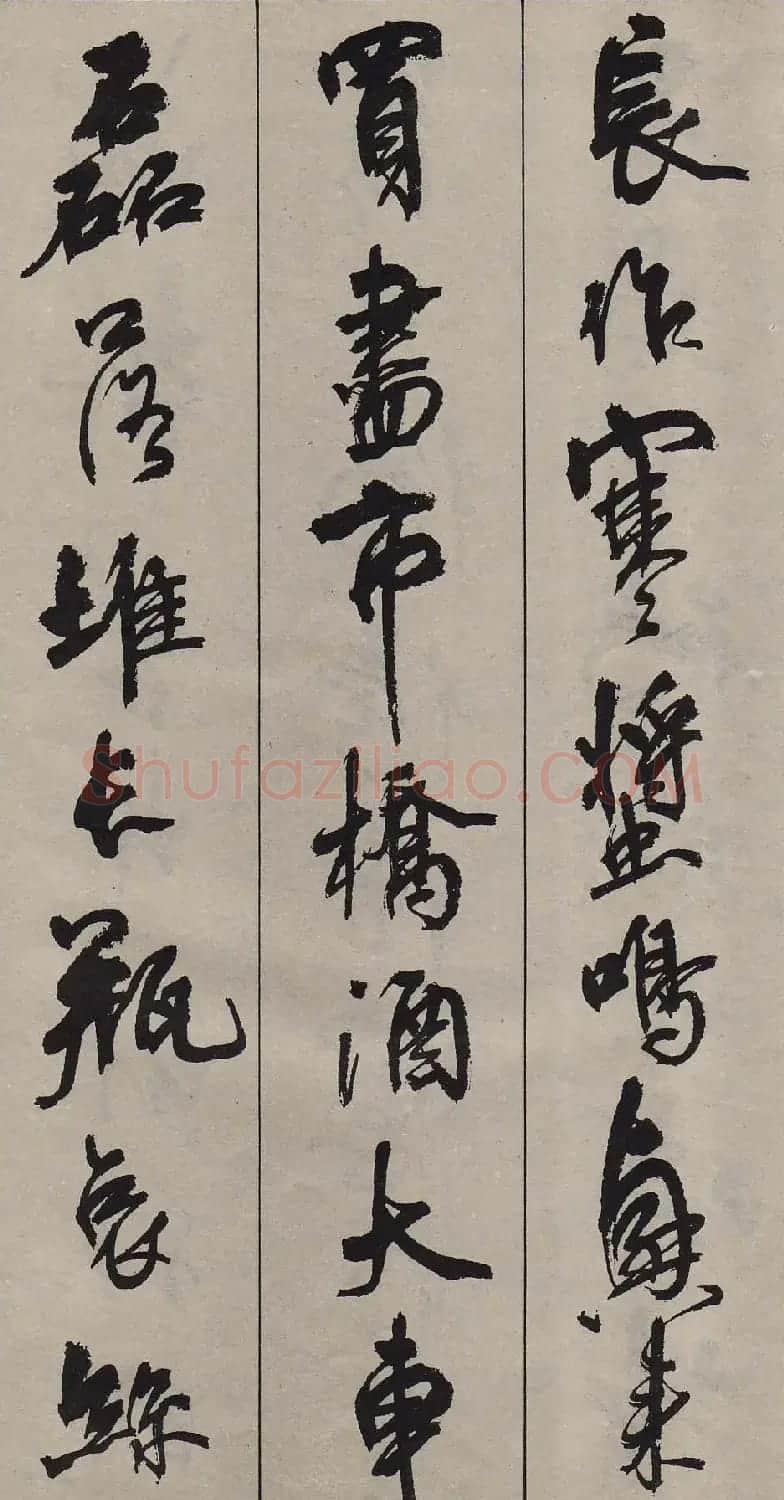 長作寒螿鳴興来
買盡市橋酒大車
磊落堆长瓶哀絲
Shufaziliao.COM